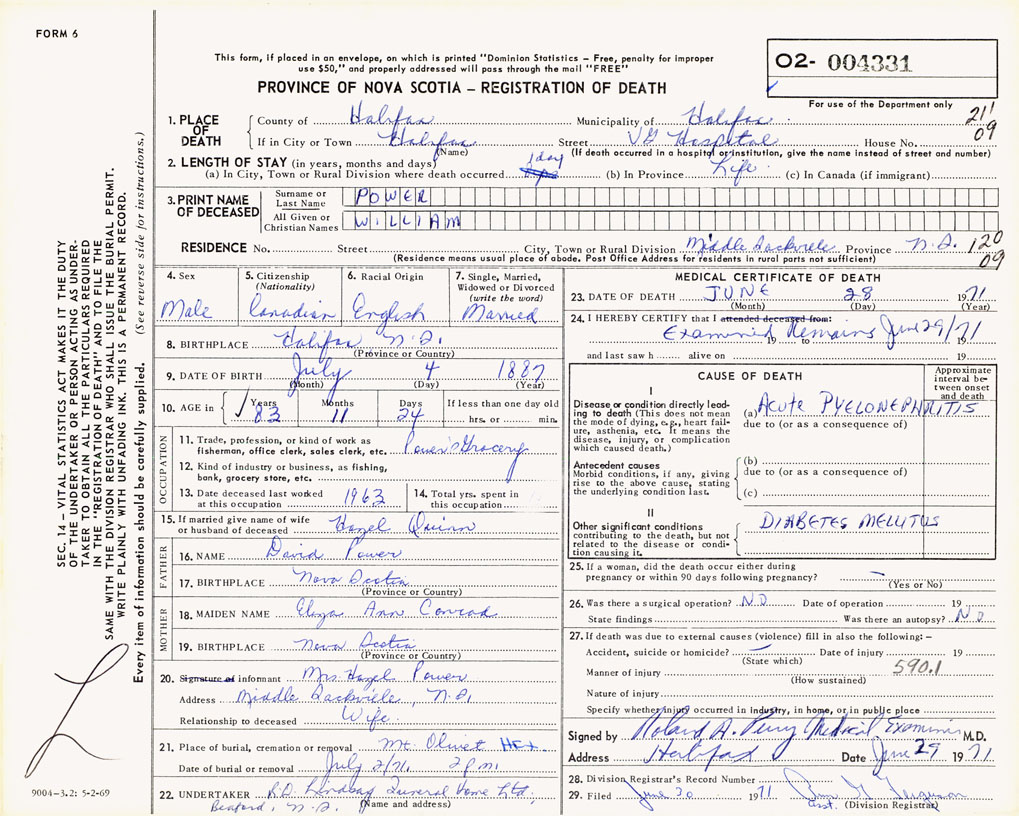 FORM 6
This form, if placed in an envelope, on which is printed "Dominion Statistics – Free, penalty for improper
use $50," and properly addressed will pass through the mail "FREE"
PROVINCE OF NOVA SCOTIA – REGISTRATION OF DEATH
02- 004331
For use of the Department only
211
09
1. PLACE OF DEATH
County of Halifax Municipality of Halifax
If in City or Town Halifax Street VG Hospital House No.
(Name) (If death occurred in a hospital or institution, give the name instead of street and number)
2. LENGTH OF STAY (in years, months and days)
(a) In City, Town or Rural Division where death occurred 1 day (b) In Province Life (c) In Canada (if immigrant)
3. PRINT NAME OF DECEASED
Surname or Last Name POWER
All Given or Christian Names WILLIAM
RESIDENCE No. Street City, Town or Rural Division Middle Sackville Province N.S. 120
09
(Residence means usual place of abode. Post Office Address for residents in rural parts not sufficient)
4. Sex
Male
5. Citizenship
(Nationality)
Canadian
6. Racial Origin
English
7. Single, Married,
Widowed or Divorced
(write the word)
Married
8. BIRTHPLACE Halifax N.S.
(Province or Country)
9. DATE OF BIRTH July 4 1887
(Month) (Day) (Year)
10. AGE in Years Months Days If less than one day old
83 11 24 hrs. or min.
OCCUPATION
11. Trade, profession, or kind of work as
fisherman, office clerk, sales clerk, etc. Power's Grocery
12. Kind of industry or business, as fishing,
bank, grocery store, etc.
13. Date deceased last worked
at this occupation 1963
14. Total yrs. spent in
this occupation
15. If married give name of wife
or husband of deceased Hazel Quinn
FATHER
16. NAME David Power
17. BIRTHPLACE Nova Scotia
(Province or Country)
MOTHER
18. MAIDEN NAME Eliza Ann Conrad
19. BIRTHPLACE Nova Scotia
(Province or Country)
20. Signature of informant Mrs. Hazel Power
Address Middle Sackville, N.S.
Relationship to deceased Wife
21. Place of burial, cremation or removal Mt. Olivet HFX
Date of burial or removal July 2/71 2 p.m.
22. UNDERTAKER R.D. Lindsay Funeral Home Ltd.
Bedford, N.S. (Name and address)
MEDICAL CERTIFICATE OF DEATH
23. DATE OF DEATH JUNE 28 1971
(Month) (Day) (Year)
24. I HEREBY CERTIFY that I attended deceased from:
Examined Remains June 29/71
19 to 19
and last saw h alive on 19
CAUSE OF DEATH
Approximate
interval be-
tween onset
and death
I
Disease or condition directly lead-
ing to death (This does not mean
the mode of dying, e.g., heart fail-
ure, asthenia, etc. It means the
disease, injury, or complication
which caused death.)
(a) ACUTE PYELONEPHRITIS
due to (or as a consequence of)
Antecedent causes
Morbid conditions, if any, giving
rise to the above cause, stating
the underlying condition last.
(b)
due to (or as a consequence of)
(c)
II
Other significant conditions
contributing to the death, but not
related to the disease or condi-
tion causing it.
DIABETES MELLITUS
25. If a woman, did the death occur either during
pregnancy or within 90 days following pregnancy? –
(Yes or No)
26. Was there a surgical operation? NO Date of operation 19
State findings Was there an autopsy? NO
27. If death was due to external causes (violence) fill in also the following: –
Accident, suicide or homicide? – Date of injury 19
(State which)
Manner of injury 590.1
(How sustained)
Nature of injury
Specify whether injury occurred in industry, in home, or in public place
Signed by Roland A. Perry Medical Examiner M.D.
Address Halifax Date June 29 1971
28. Division Registrar's Record Number
29. Filed June 30 1971 Ferguson
asst. (Division Registrar)
SEC. 14 – VITAL STATISTICS ACT MAKES IT THE DUTY
OF THE UNDERTAKER OR PERSON ACTING AS UNDER-
TAKER TO OBTAIN ALL THE PARTICULARS REQUIRED
IN THE "REGISTRATION OF DEATH" AND TO FILE THE
SAME WITH THE DIVISION REGISTRAR WHO SHALL ISSUE THE BURIAL PERMIT.
WRITE PLAINLY WITH UNFADING INK. THIS IS A PERMANENT RECORD.
Every item of information should be carefully supplied. (See reverse side for instructions.)
9004-3.2: 5-2-69